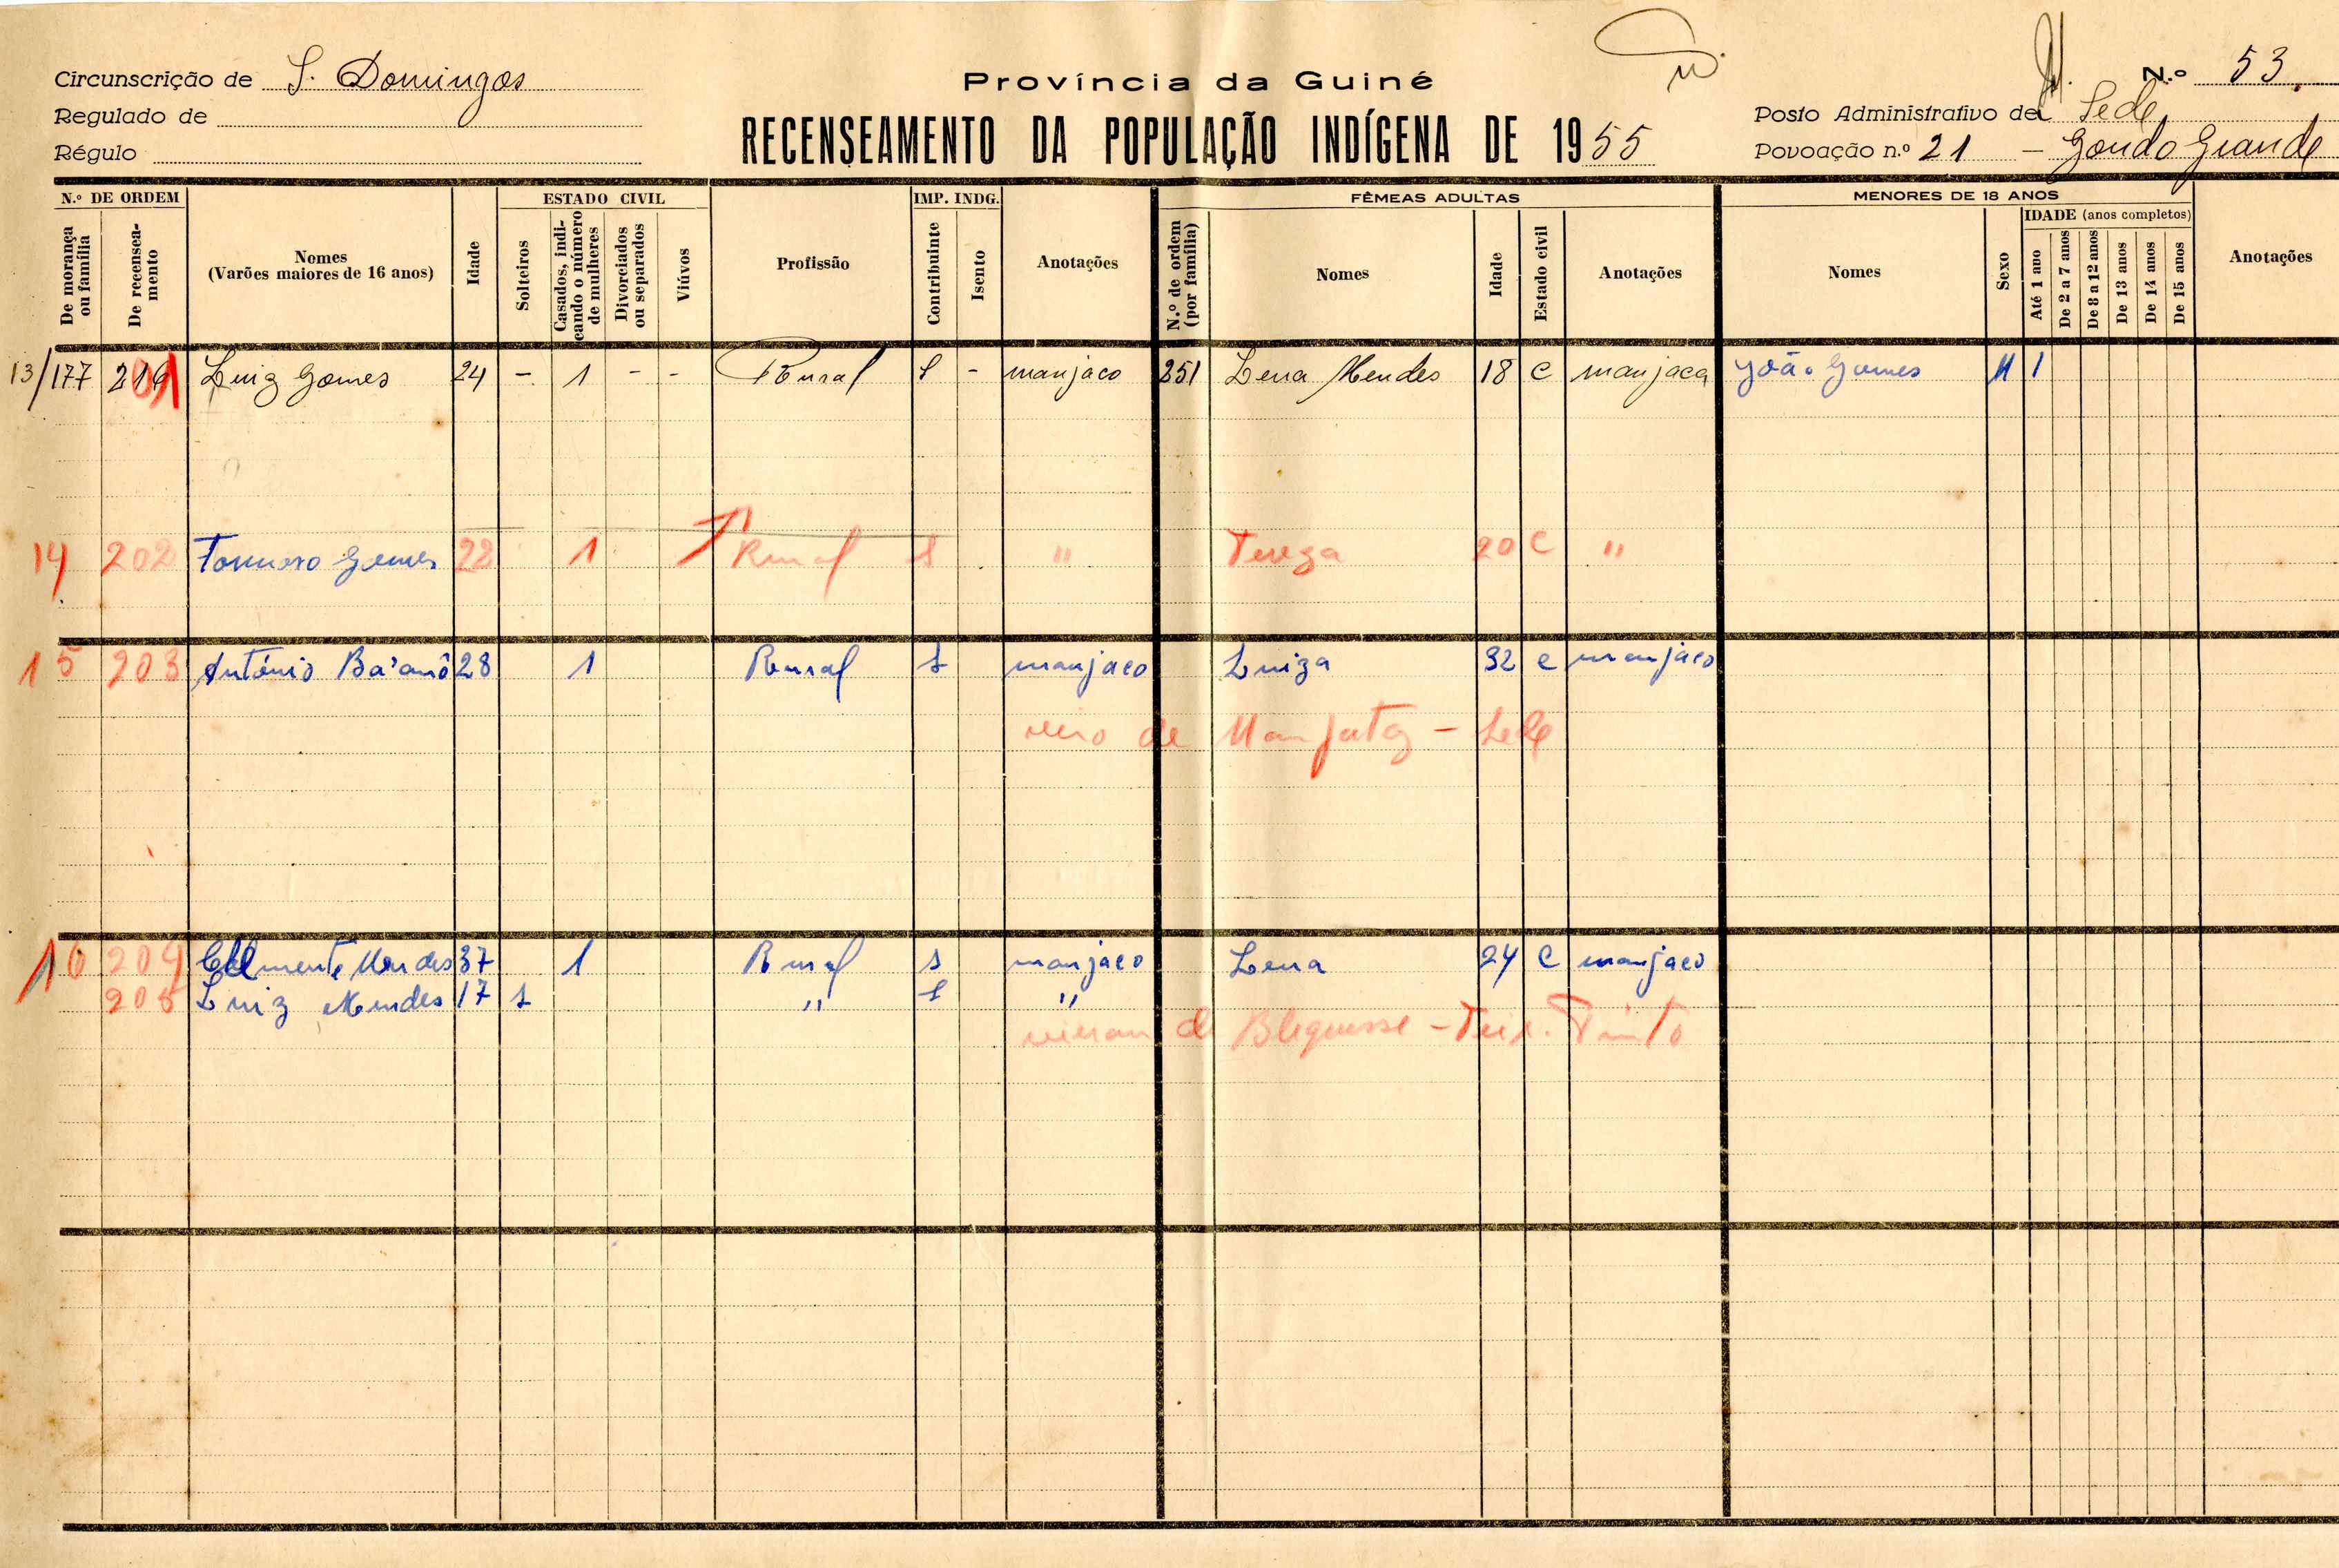 Circunscrição de S. Domingos
Regulado de
Régulo
Província da Guiné
RECENSEAMENTO DA POPULAÇÃO INDÍGENA DE 1955
N.º 53
Posto Administrativo de Sede
Povoação n.º 21 - Gondo Grande
N.º DE ORDEM
De morança ou família
De recensea-mento
Nomes
(Varões maiores de 16 anos)
Idade
ESTADO CIVIL
Solteiros
Casados, indi-cando o número de mulheres
Divorciados ou separados
Viúvos
Profissão
IMP. INDG.
Contribuinte
Isento
Anotações
FÊMEAS ADULTAS
N.º de ordem (por família)
Nomes
Idade
Estado civil
Anotações
MENORES DE 18 ANOS
Nomes
Sexo
IDADE (anos completos)
Até 1 ano
De 2 a 7 anos
De 8 a 12 anos
De 13 anos
De 14 anos
De 15 anos
Anotações
13/177 201 Luiz Gomes 24 - 1 - - Rural S - manjaco 251 Lena Mendes 18 C manjaca João Gomes M 1
14 202 Gomes 22 1 Rural S " Tereza 20 C "
15 203 António Ba'anô 28 1 Rural S manjaco Luiza 32 C manjaco
veio de - Sede
16 204 Clemente Mendes 37 1 Rural S manjaco Lena 24 C manjaco
205 Luiz Mendes 17 S " S "
vieram de Bleguesse - Teix. Pinto